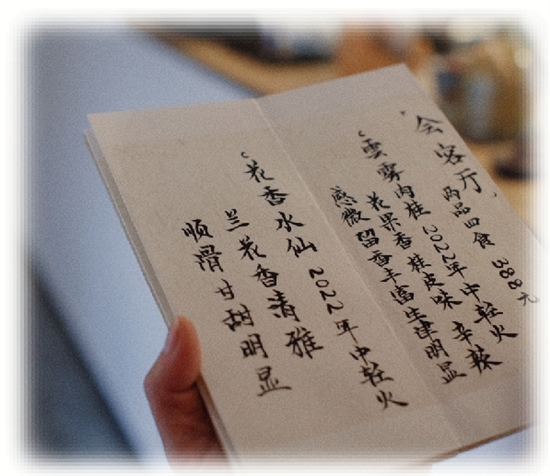 会客厅
两品四食 388元
雲雾肉桂 2022年中轻火
花果香桂皮味 辛辣
感微 留香丰富生津明显
花香水仙 2022年中轻火
兰花香清雅
顺滑甘甜明显